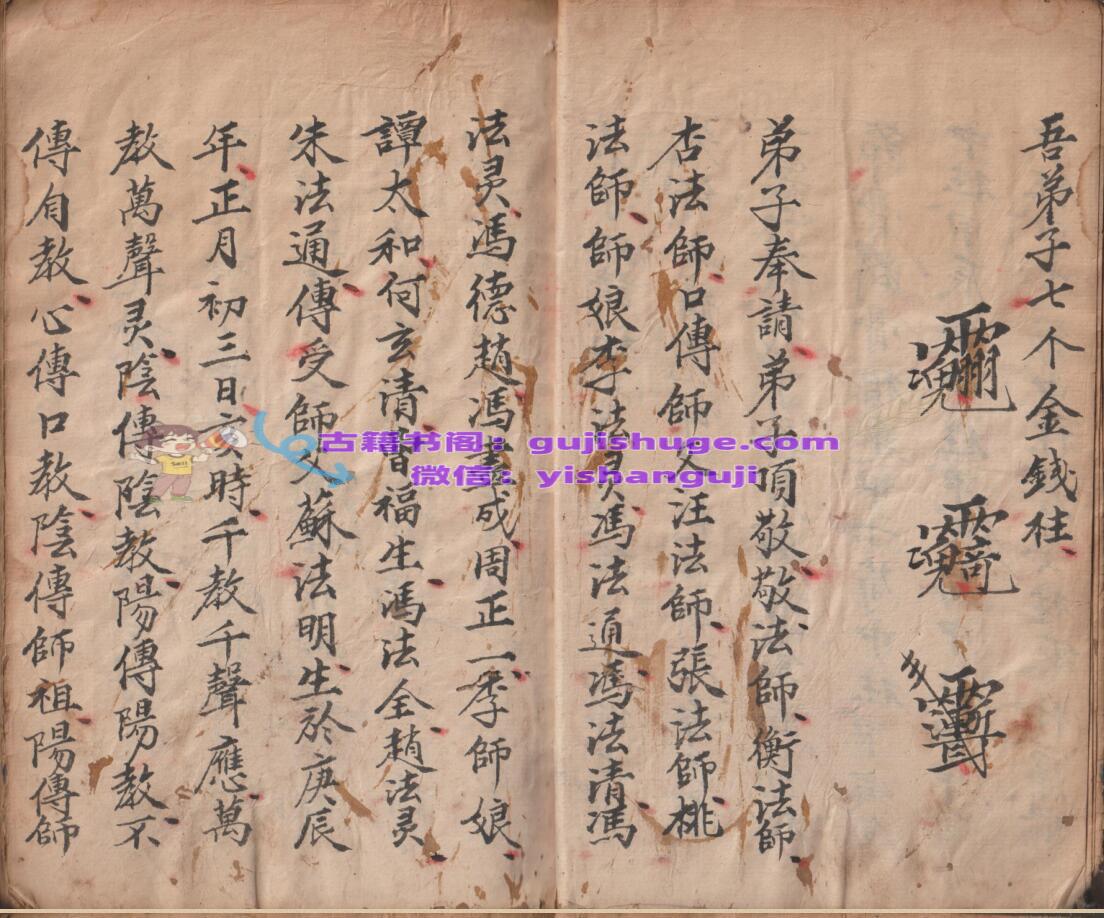 吾弟子七个金錢柱
弟子奉請弟子項敬敬法師衡法師
杏法師口傳師父汪法師張法師桃
法師師娘李法灵馮法通馮法清馮
法灵馮德趙馮成周正一季師娘
譚太和何玄清福生馮法全趙法灵
朱法通傳受師父蘇法明生於庚辰
年正月初三日亥時千教千聲應萬
教萬聲灵陰傳陰教陽傳陽教不
傳自教心傳口教陰傳師祖陽傳師
古籍书阁：gujishuge.com
微信：yishanguji